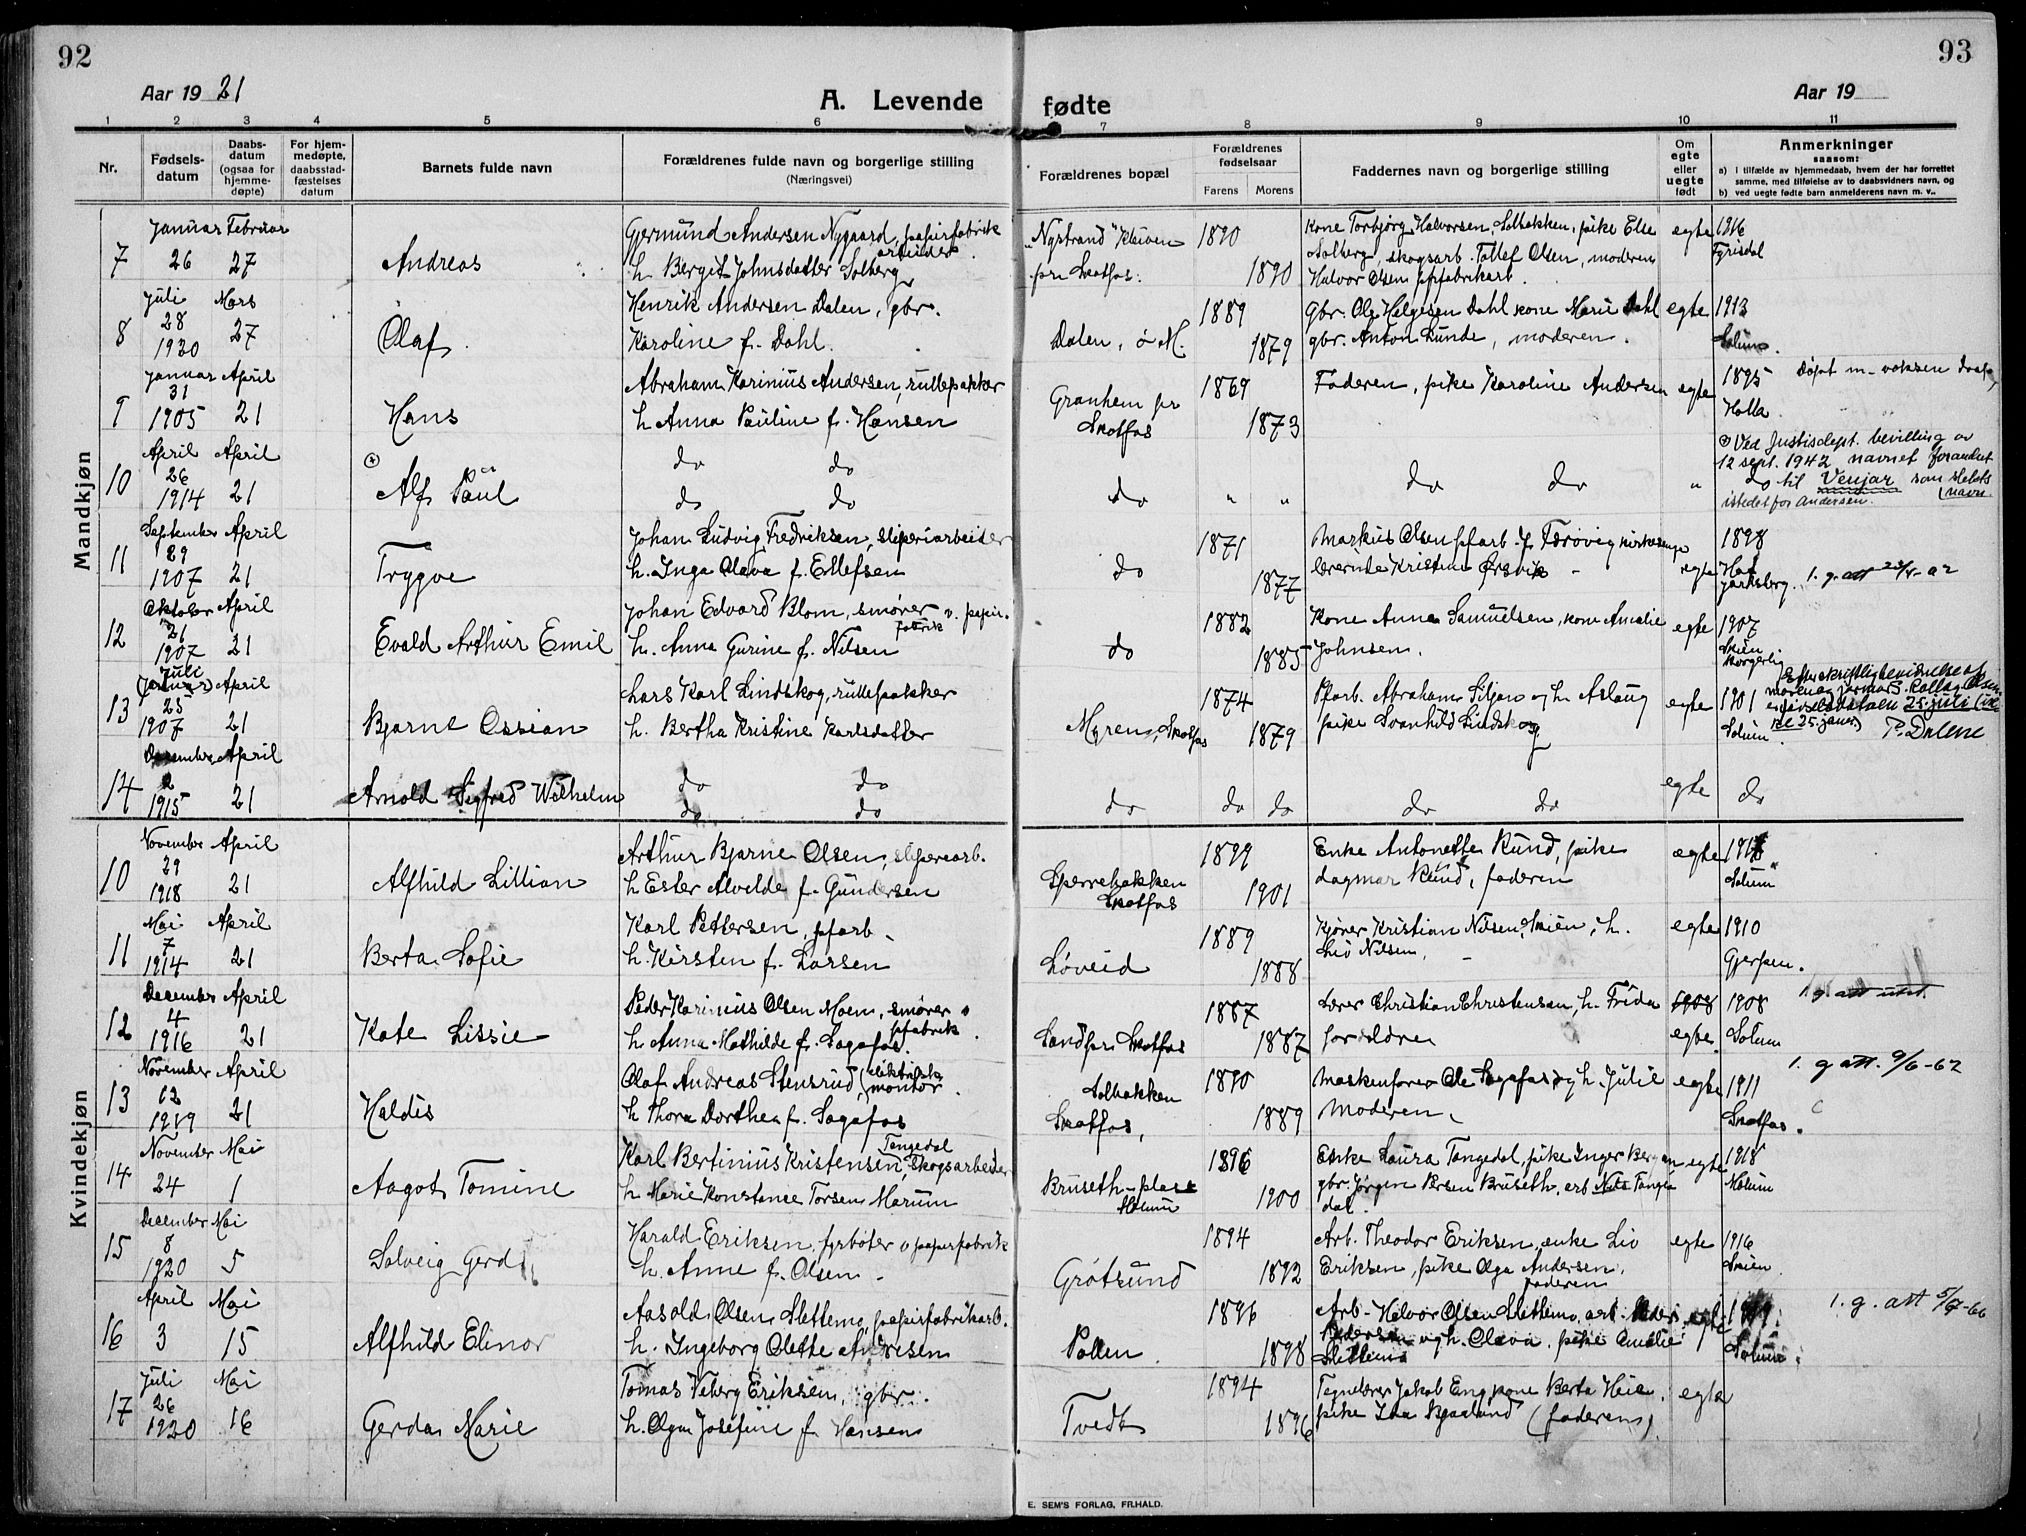 92
Aar 1921
A. Levende
1 2 3 4 5 6
Nr.
Fødsels-
datum
Daabs-
datum
(ogsaa for
hjemme-
døpte)
For hjem-
medøpte,
daabsstad-
fæstelses
datum
Barnets fulde navn
Forældrenes fulde navn og borgerlige stilling
(Næringsvei)
Mandkjøn
Januar Februar
7 26 27 Andreas
Gjermund Andersen Nygaard, papirfabrik
arbeider
h. Bergit Johnsdatter Solberg
Juli Mars
8 28 1920 27 Olaf
Henrik Andersen Dalen, gbr.
Karoline f. Dahl.
Januar April
9 31 1905 21 Hans
Abraham Karinius Andersen, rullepakker
h. Anna Pauline f. Hansen
April April
10 26 1914 21 Alf Paul
do do
do do
September April
11 29 1907 21 Trygve
Johan Ludvig Fredriksen, sliperiarbeider
h. Inga Olava f. Ellefsen
Oktober April
12 21 1907 21 Evald Arthur Emil
Johan Edvard Blom, smører v. papir.
fabrik
h. Anna Gurine f. Nilsen
Juli
(Januar) April
13 25 1907 21 Bjarne Ossian
Lars Karl Lindskog, rullepakker
h. Bertha Kristine Karlsdatter
Desember April
14 2 1915 21 Arnold Sigfred Wilhelm
do do
do do
Kvindekjøn
November April
10 29 1918 21 Alfhild Lillian
Arthur Bjarne Olsen, sliperiarb.
h. Ester Alvelde f. Gundersen
Mai April
11 7 1914 21 Berta Sofie
Karl Pettersen, pfarb.
h. Kirsten f. Larsen
December April
12 4 1916 21 Kate Lissie
Peder Karinius Olsen Moen, smører v
pfabrik
h. Anna Mathilde f. Sagafos.
November April
13 1919 21 Haldis
Olaf Andreas Stensrud, elektrisk
montør
h. Thora Dorthea f. Sagafos
November Mai
14 24 1 Aagot Tomine
Tangedal
Karl Bertinius Kristensen, skogsarbeider
h. Marie Konstance Torsen Marum
December Mai
15 8 1920 5 Solveig Gerd
Harald Eriksen, fyrbøter v papirfabrik
h. Anne f. Olsen
April Mai
16 3 15 Alfhild Elinor
Aasold Olsen Slettemo, papirfabrikarb.
h. Ingeborg Olette Andresen
Juli Mai
17 26 1920 16 Gerda Marie
Tomas Veberg Eriksen, gbr.
h. Olga Josefine f. Hansen
93
fødte
Aar 19
7 8 9 10 11
Forældrenes bopæl
Forældrenes
fødselsaar
Farens Morens
Faddernes navn og borgerlige stilling
Om
egte
eller
uegte
født
Anmerkninger
saasom:
a) I tilfælde av hjemmedaab, hvem der har forrettet
samme, med tilføielse av to daabsvidners navn, og
b) ved uegte fødte barn anmelderens navn m. v..
"Nystrand" Kleiven 1890 Kone Torbjørg Halvorsen, Solbakken, pike Else egte 1916
pr. Skotfos. 1890 Solberg, skogsarb. Tollef Olsen, moderen Fyrisdal
Halvor Olsen ppfabrikarb.
1889 Gbr. Ole Helgesen Dahl kone Marie Dahl egte 1913
Dalen, ø M. 1879 gbr. Anton Lunde, moderen. Solum.
Granhem pr 1869 Faderen, pike Karoline Andersen egte 1895 Døpt m. voksen daab
Skotfos 1873 Holla
do " " do do " do
Ved Justisdept. bevilling av
12 sept. 1942 navnet forandret
til Venjar som slekts
navn
istedet for Andersen.
do 1871 Markus Olsen pfarb. 1898
1877 lærerinde Kristine Ørsvik egte
Jarlsberg. 1. g. att
do 1882 Kone Anna Samuelsen, kone Amalie egte 1907
1885 Johnsen. Skien
borgerlig
Myren, Skotfos 1874 Pfarb. Abraham Siljan og h. Aslaug egte 1901
1879 pike Svanhild Lindskog Solum.
25. juli
25. januar) P. Dalene
do do do do do egte do
Sperrebakken 1899 Enke Antonette Rund, pike egte
Skotfos 1901 dagmar Rund, faderen Solum
Løveid 1889 Kjører Kristian Nilsen, Skien, h. egte 1910
1888 Liv Nilsen, Gjerpen.
Sand pr. Skotfos 1887 Lærer Christian Christensen, h. Frida 1908 1908
1887 forældre egte. Solum
Solbakken 1890 Maskenfører Ole Sagafos og h. Julie egte 1911 1. g att. 9/6-62
Skotfos, 1889 Moderen. Skotfos.
Bruseth-plads 1896 Enke Laura Tangedal, pike Inger Bergan egte 1918
Melum 1900 gbr. Jørgen Persen Bruseth, arb Nils Tange Melum
dal.
Grøtsund 1894 Arb. Theodor Eriksen, enke Liv egte 1916
1892 Eriksen, pike Olga Andersen, Skien
faderen
Pollen 1896 Arb. Halvor Olsen Slettemo, arb. Peder egte 1. g. att 5/7-66
1898 Pedersen og h. Olava, pike Amalie Solum.
Slettemo
Tvedt 1894 Tegnelærer Jakob Eng, kone Berta Heien, egte
1896 pike Ida Bjaaland (faderen).
E. SEM'S FORLAG, FR.HALD.